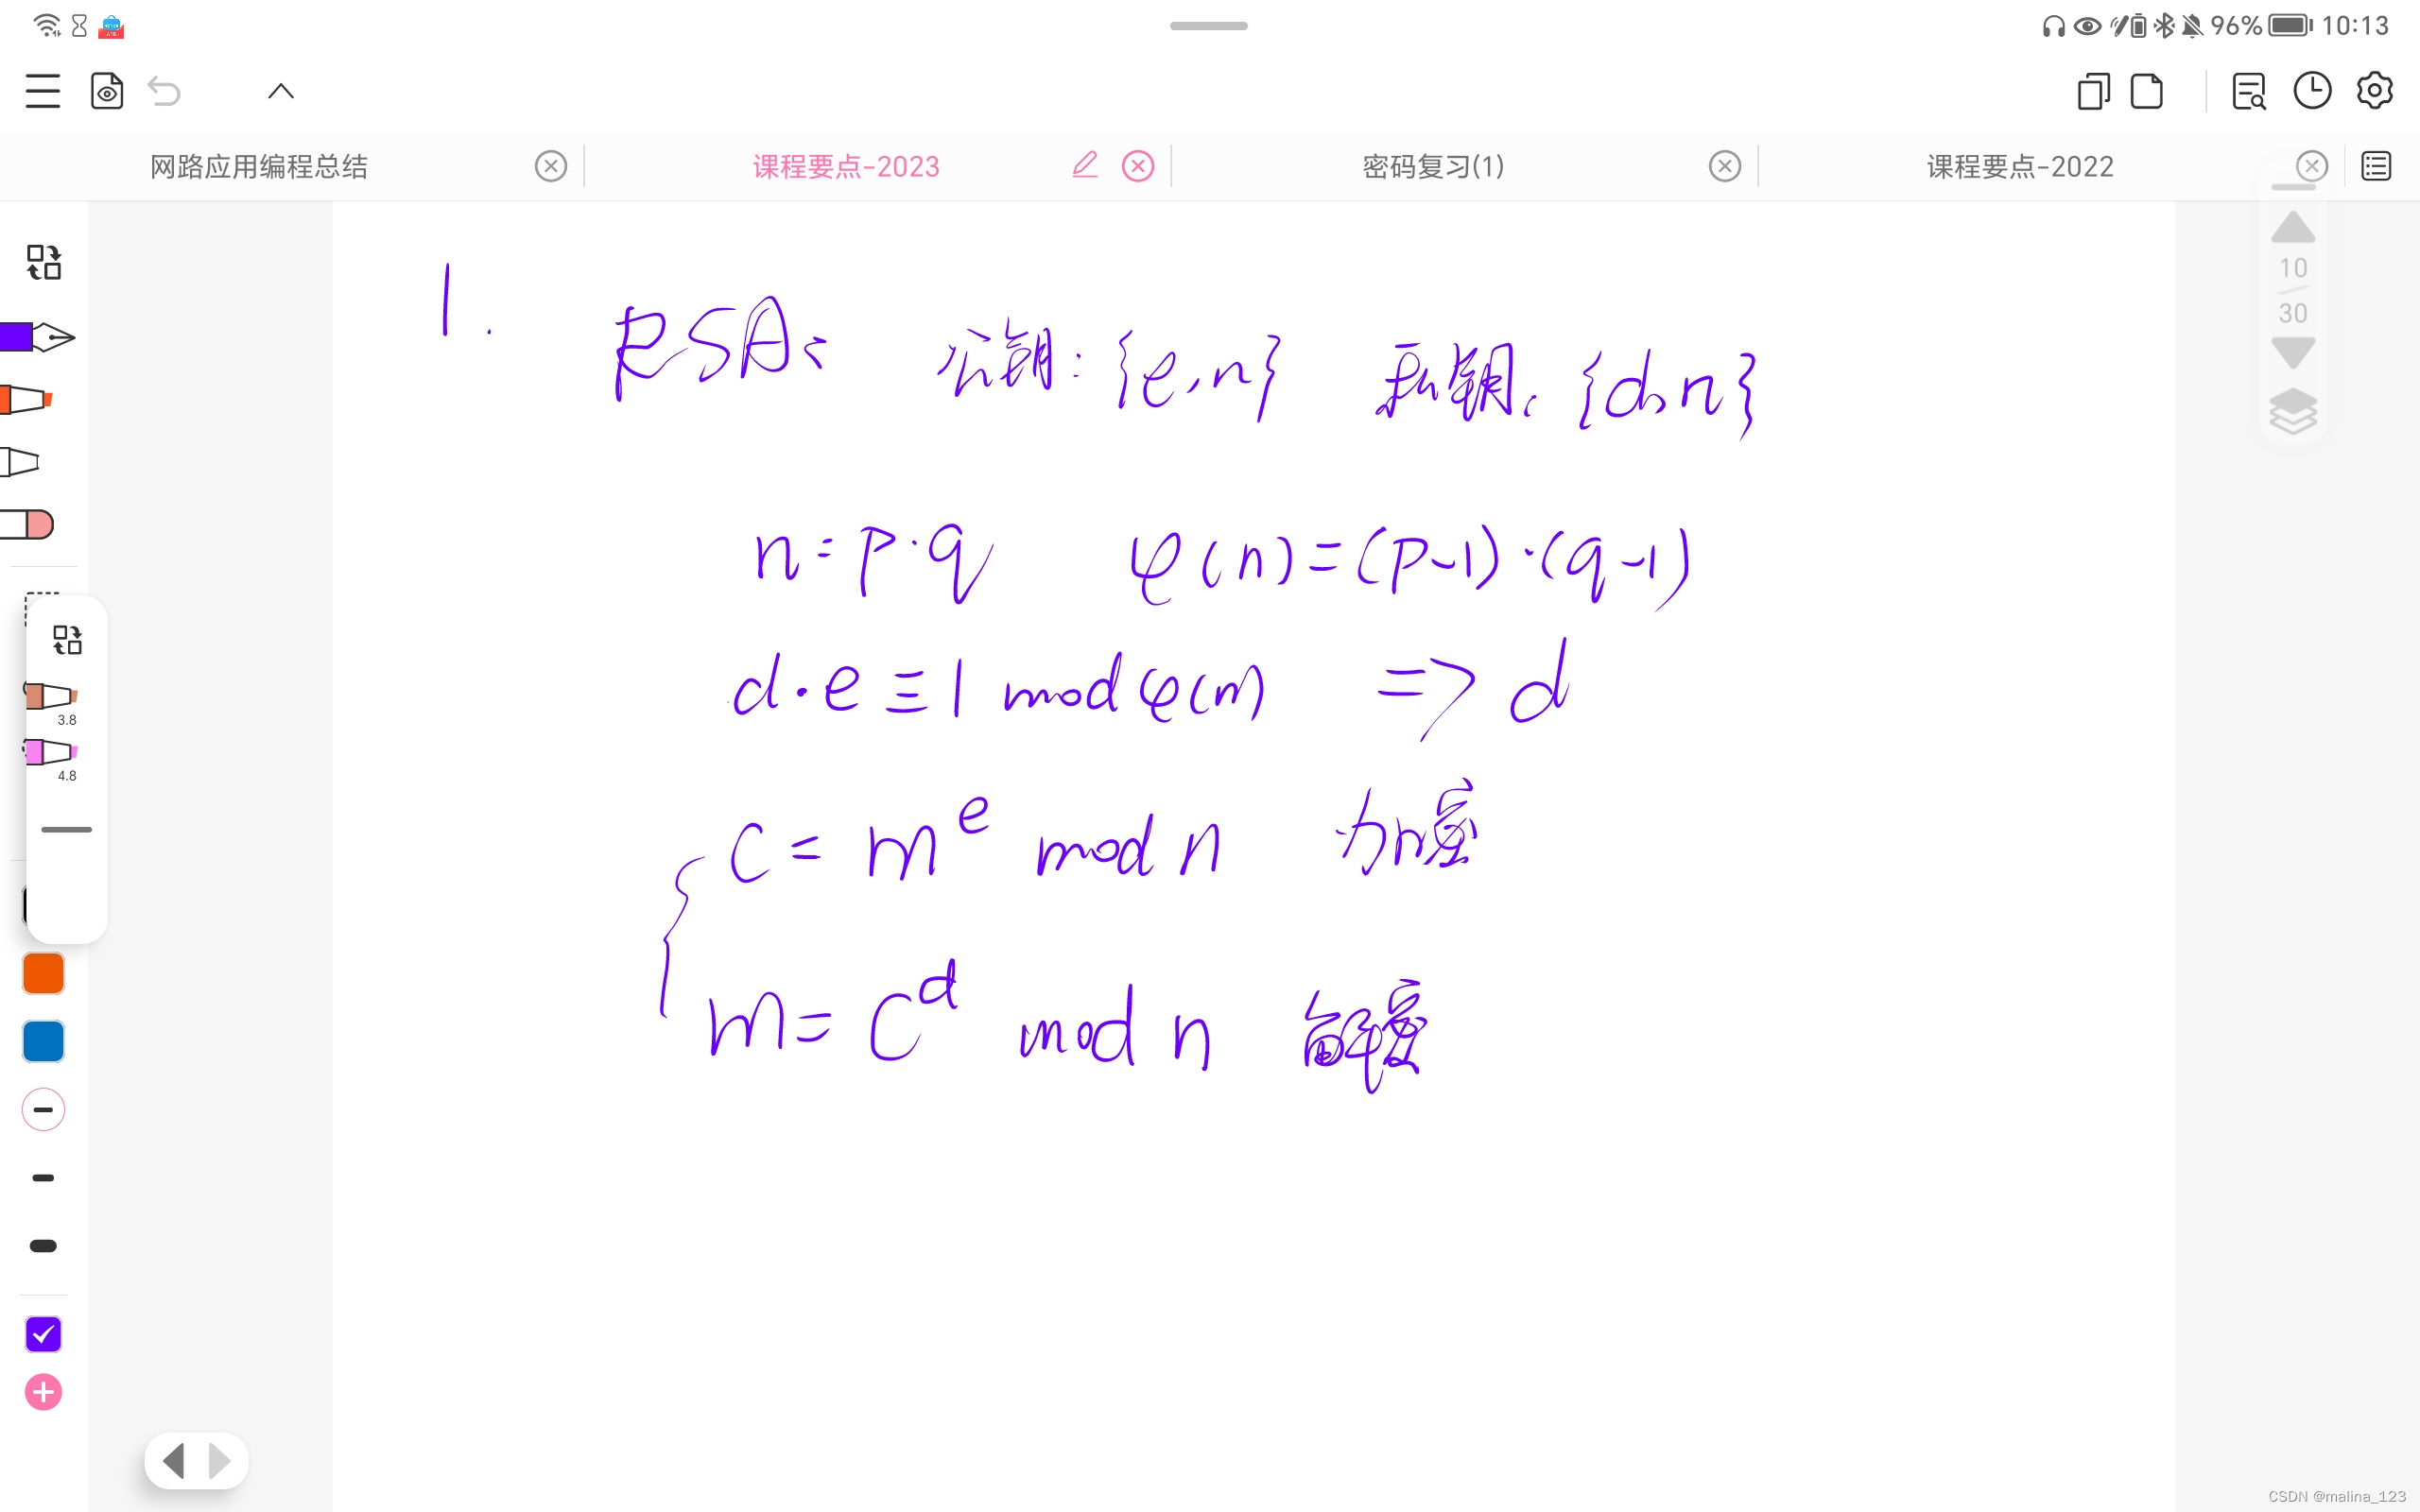 96% 10:13
网路应用编程总结 课程要点-2023 密码复习(1) 课程要点-2022
10
30
1. RSA: 公钥:{e,n} 私钥:{d,n}
n=p·q φ(n)=(p-1)·(q-1)
d·e≡1 mod φ(n) => d
3.8
4.8
C=m^e mod n 加密
m=C^d mod n 解密
CSDN @malina_123